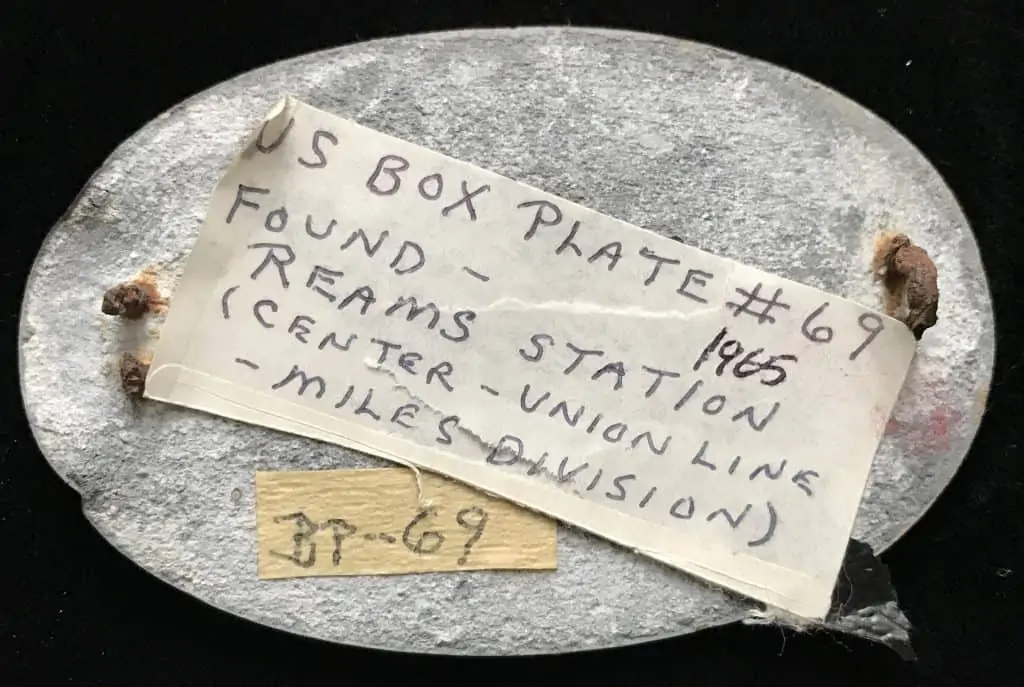 US BOX PLATE #69
FOUND - 1965
REAMS STATION
(CENTER - UNION LINE
- MILES DIVISION)
BP-69